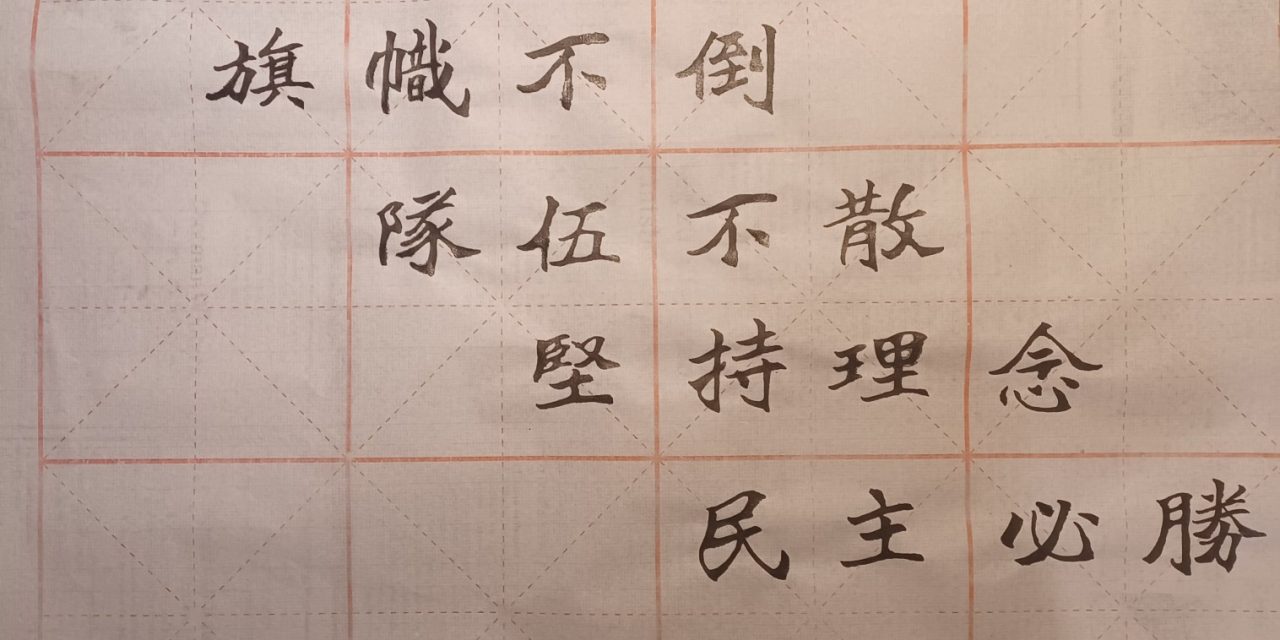 旗幟不倒
隊伍不散
堅持理念
民主必勝